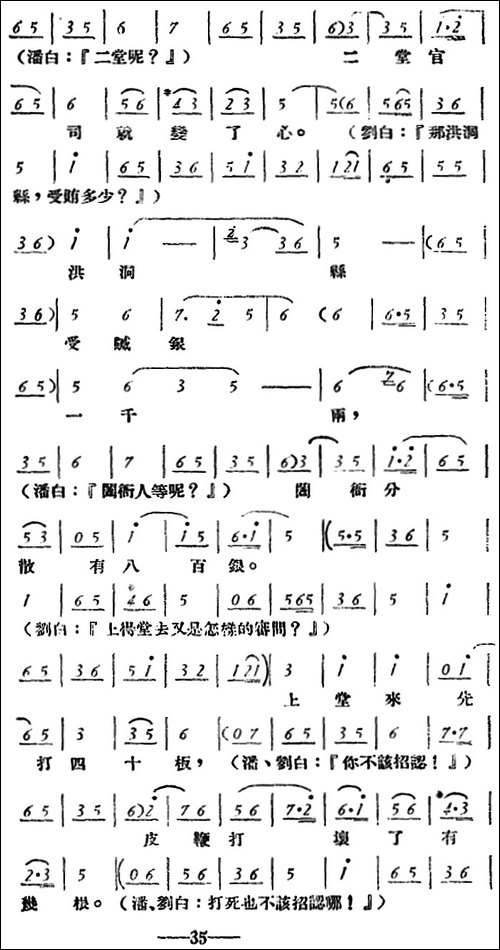 6 5 | 3 5 | 6 | 7 | 6 5 | 3 5 | 6) 3 | 3 5 | i·2
(潘白:『二堂呢?』) 二 堂 官
6 5 | 6 | 5 6 | #4 3 | 2 3 | 5 | 5 (6 | 5 65 | 3 6
司 就 變 了 心。 (劉白:『那洪洞
5 | i | 6 5 | 3 6 | 5 i | 3 2 | 1 21 | 6 5 | 5 5
縣,受賄多少?』)
3 6) | i | i — | 2 3 3 6 | 5 — | (6 5
洪 洞 縣
3 6) | 5 6 | 7. 2 5 | 6 (6 | 6·5 | 3 5
受 贓 銀
6 5) | 5 6 3 5 — | 6 7 6 | (6·5
一 千 兩,
3 5 | 6 | 7 | 6 5 | 3 5 | 6) 3 | 3 5 | i·2 | 6 5
(潘白:『閤衙人等呢?』) 閤 衙 分
5 3 | 0 5 | i | i 5 | 6·i | 5 | (5·5 | 3 6 | 5
散 有 八 百 銀。
1 | 6 5 | 4 6 | 5 | 0 6 | 565 | 3 6 | 5 | i
(劉白:『上得堂去又是怎樣的審問?』)
6 5 | 3 6 | 5 i | 3 2 | 1 21) | 3 | i | i | 0 i
上 堂 來 先
6 5 | 3 | 3 5 | 6 | (0 7 | 6 5 | 3 5 | 6 | 7·7
打 四 十 板, (潘、劉白:『你不該招認!』)
6 5 | 3 5 | 6) 2 | 7 6 | 5 6 | 7·2 | 6·i | 5 6 | #4·3
皮 鞭 打 壞 了 有
2·3 | 5 | (0 6 | 5 6 | 3 6 | 5 | i | 6 5 | 3 6
幾 根。(潘、劉白:打死也不該招認哪!』)
—35—